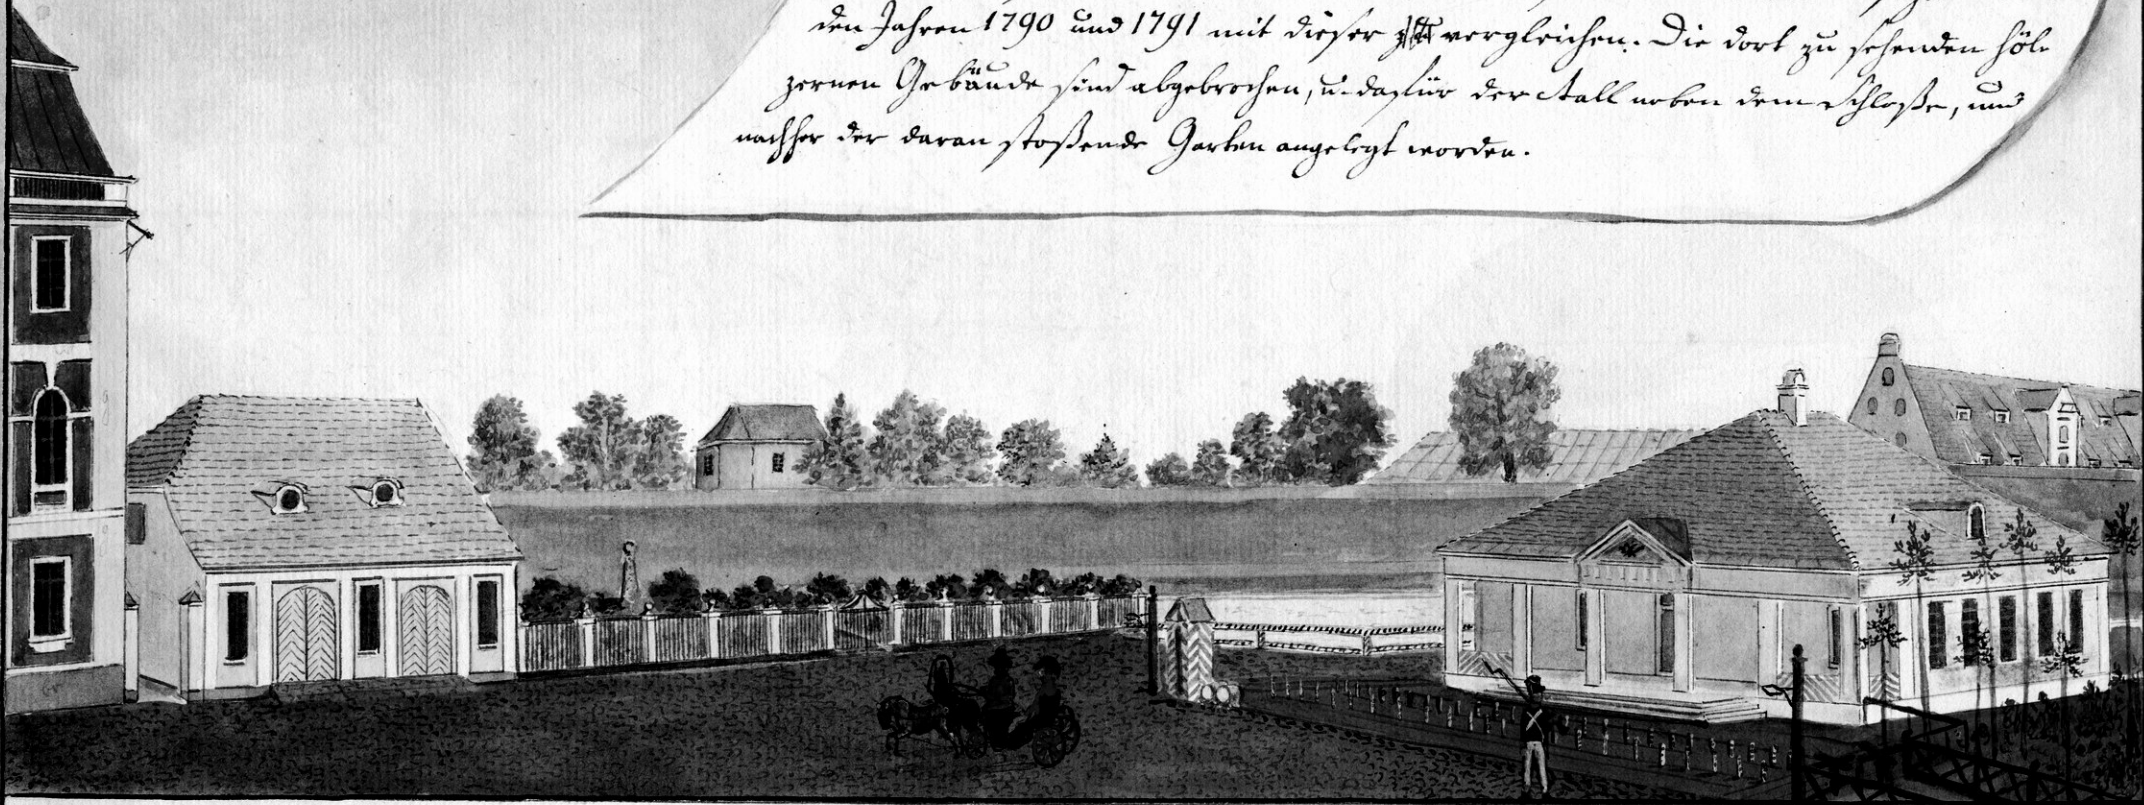 den Jahren 1790 und 1791 mit dieser vergleichen. Die dort zu sehenden höl-
zernen Gebäude sind abgebrochen, u. dafür der Stall neben dem Schloße, und
nachher der daran stoßende Garten angelegt worden.